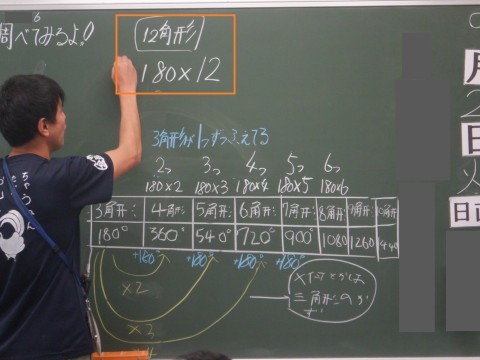 調べてみるよ!
12角形
180×12
3角形が1つずつふえてる
2つ 3つ 4つ 5つ 6つ
180×2 180×3 180×4 180×5 180×6
3角形 4角形 5角形 6角形 7角形 8角形 9角形
180° 360° 540° 720° 900° 1080 1260
+180° +180° +180° +180°
×2
×3
三角形の
月
2
日
火
日直